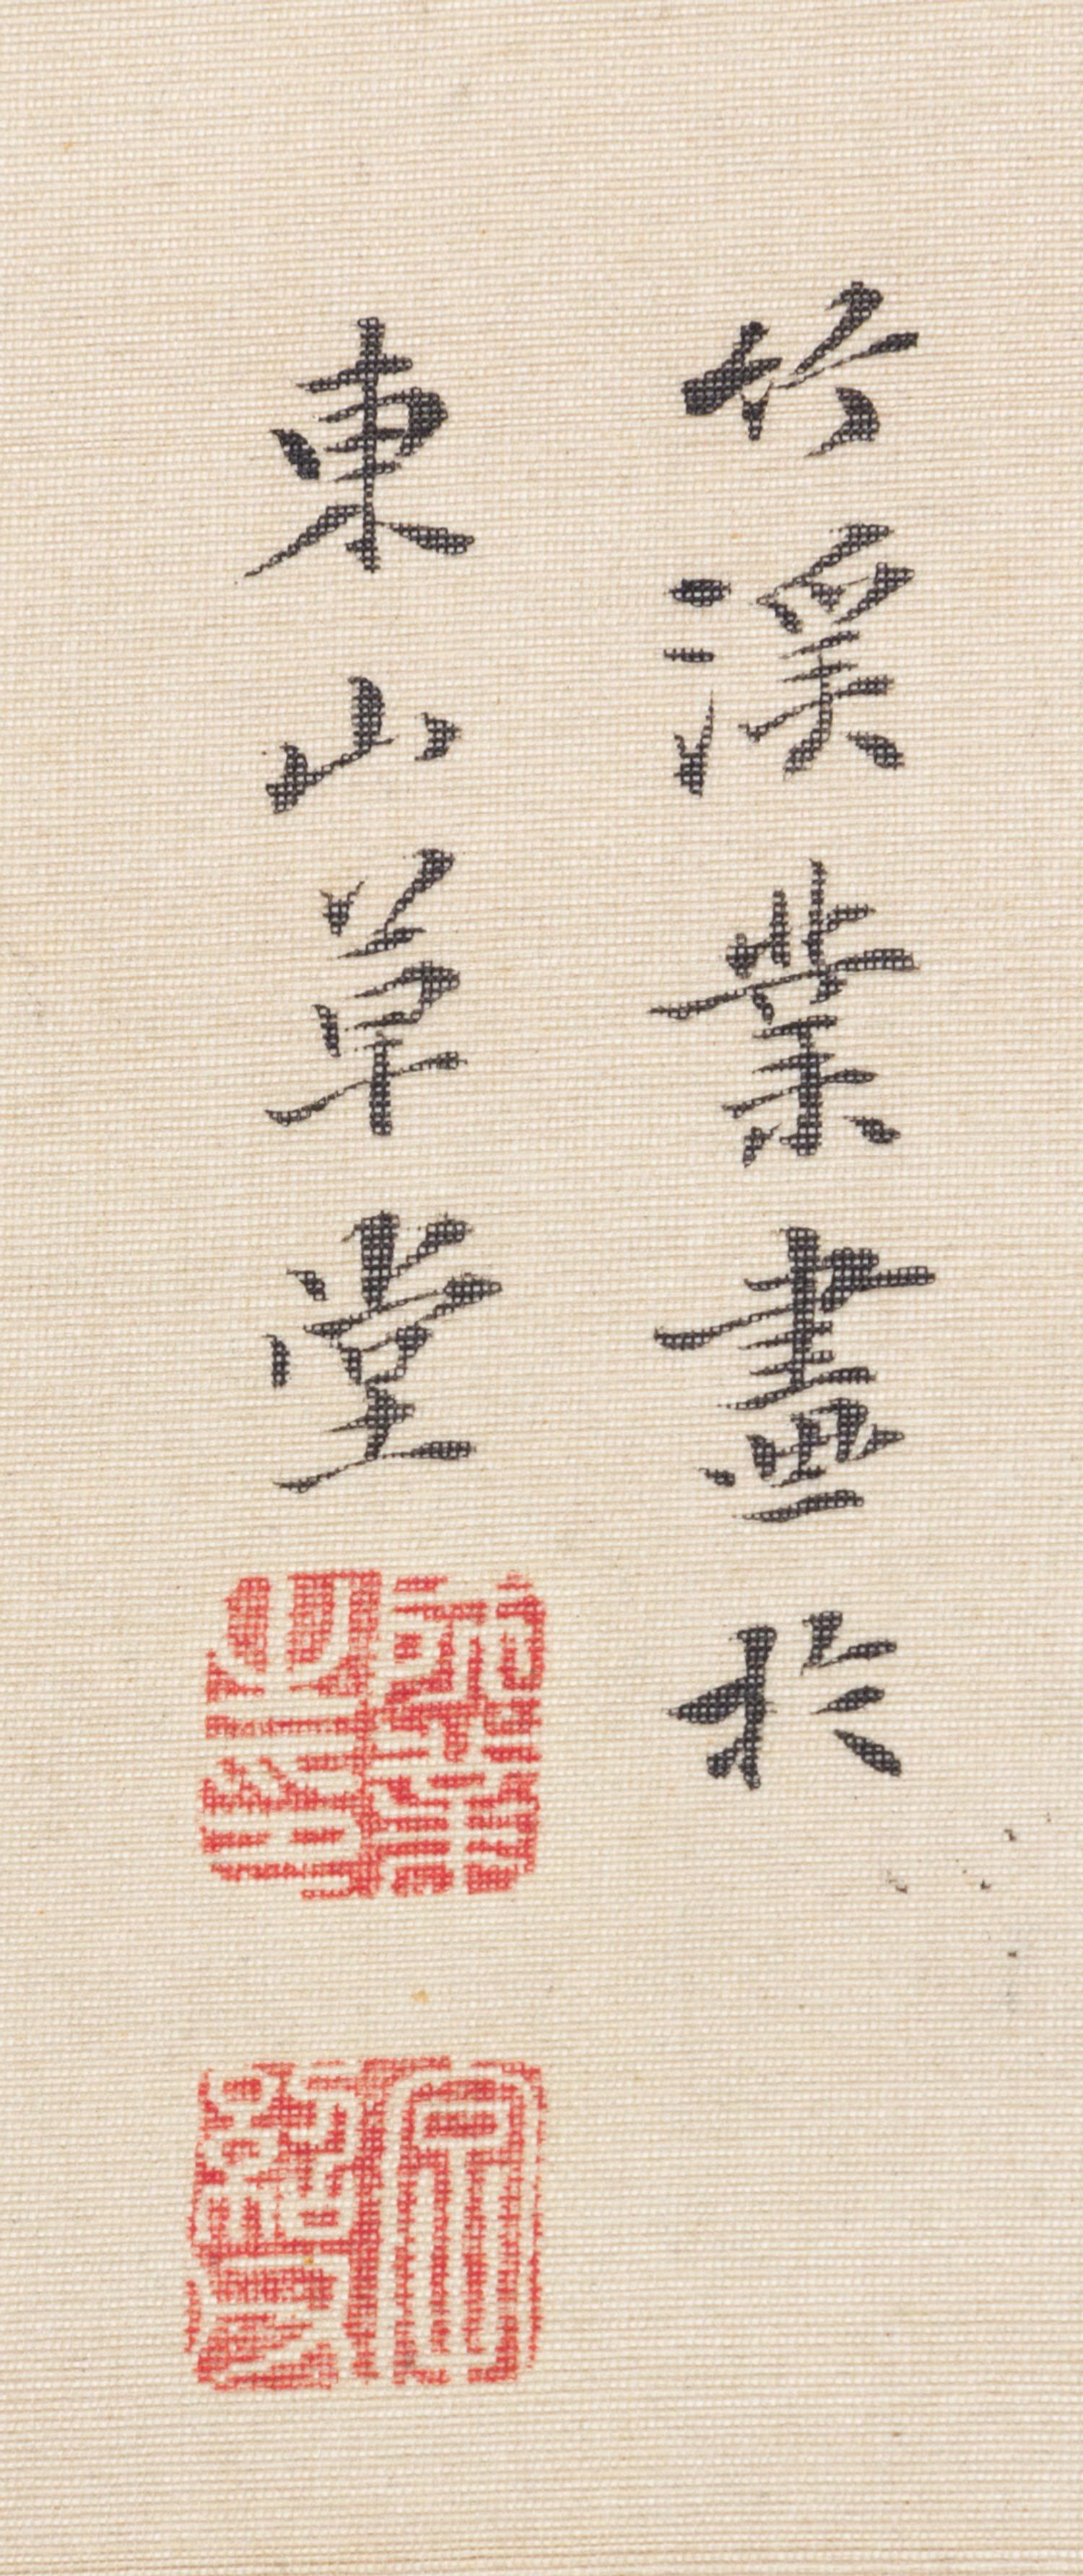 竹溪業畫於
東山草堂